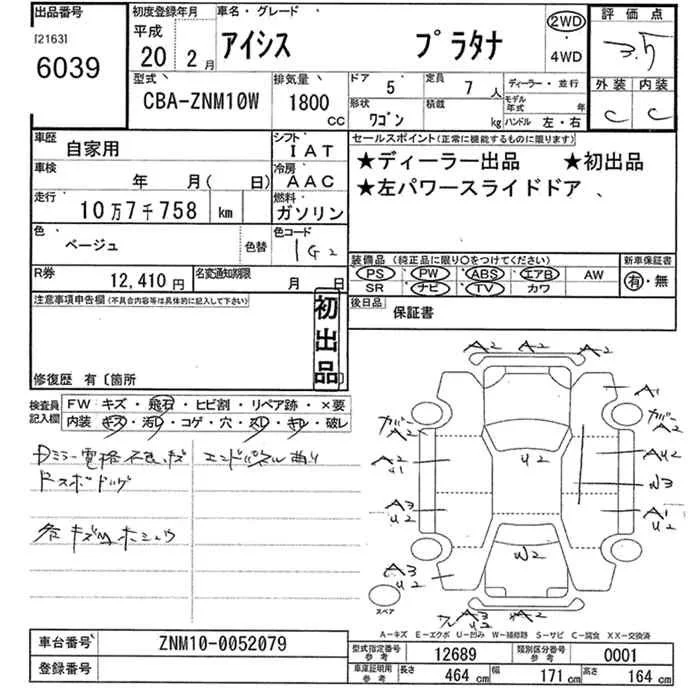 出品番号
[2163]
6039
初度登録年月
平成
20年 2月
車名・グレード
アイシス プラタナ
2WD
・
4WD
評価点
3.5
外装 内装
C C
型式
CBA-ZNM10W
排気量
1800
CC
ドア 5
定員 7 人
形状 ワゴン
積載 kg
ディーラー・並行
モデル年式 年
ハンドル 左・右
車歴 自家用
シフト IAT
車検 年 月( 日)
冷房 AAC
走行 10万7千758 km
燃料 ガソリン
色 ベージュ 色替
色コード 1G2
R券 12,410 円
名変通知期限 月 日
セールスポイント(正常に機能するものに限ります)
★ディーラー出品 ★初出品
★左パワースライドドア 、
装備品(純正品に限り○をつけてください)
PS PW ABS エアB AW
SR ナビ TV カワ
新車保証書
有・無
後日品 保証書
注意事項申告欄(不具合内容等は具体的に記入して下さい)
初出品
修復歴 有〔箇所
検査員記入欄
FW キズ・飛石・ヒビ割・リペア跡・×要
内装 キズ・汚レ・コゲ・穴・スレ・キレ・破レ
エンドパネル曲り
A2 A2 A2
A1
カバー A2
カバー A2
A2 U1
U2
AU2
W3
A3 U2
A1 U2
W2
A3 U2
A3 U2
スペア
A-キズ E-エクボ U-凹み W-補修跡 S-サビ C-腐食 XX-交換済
車台番号 ZNM10-0052079
登録番号
型式指定番号 参考 12689
類別区分番号 参考 0001
車庫証明用 参考 長さ 464 cm 幅 171 cm 高さ 164 cm